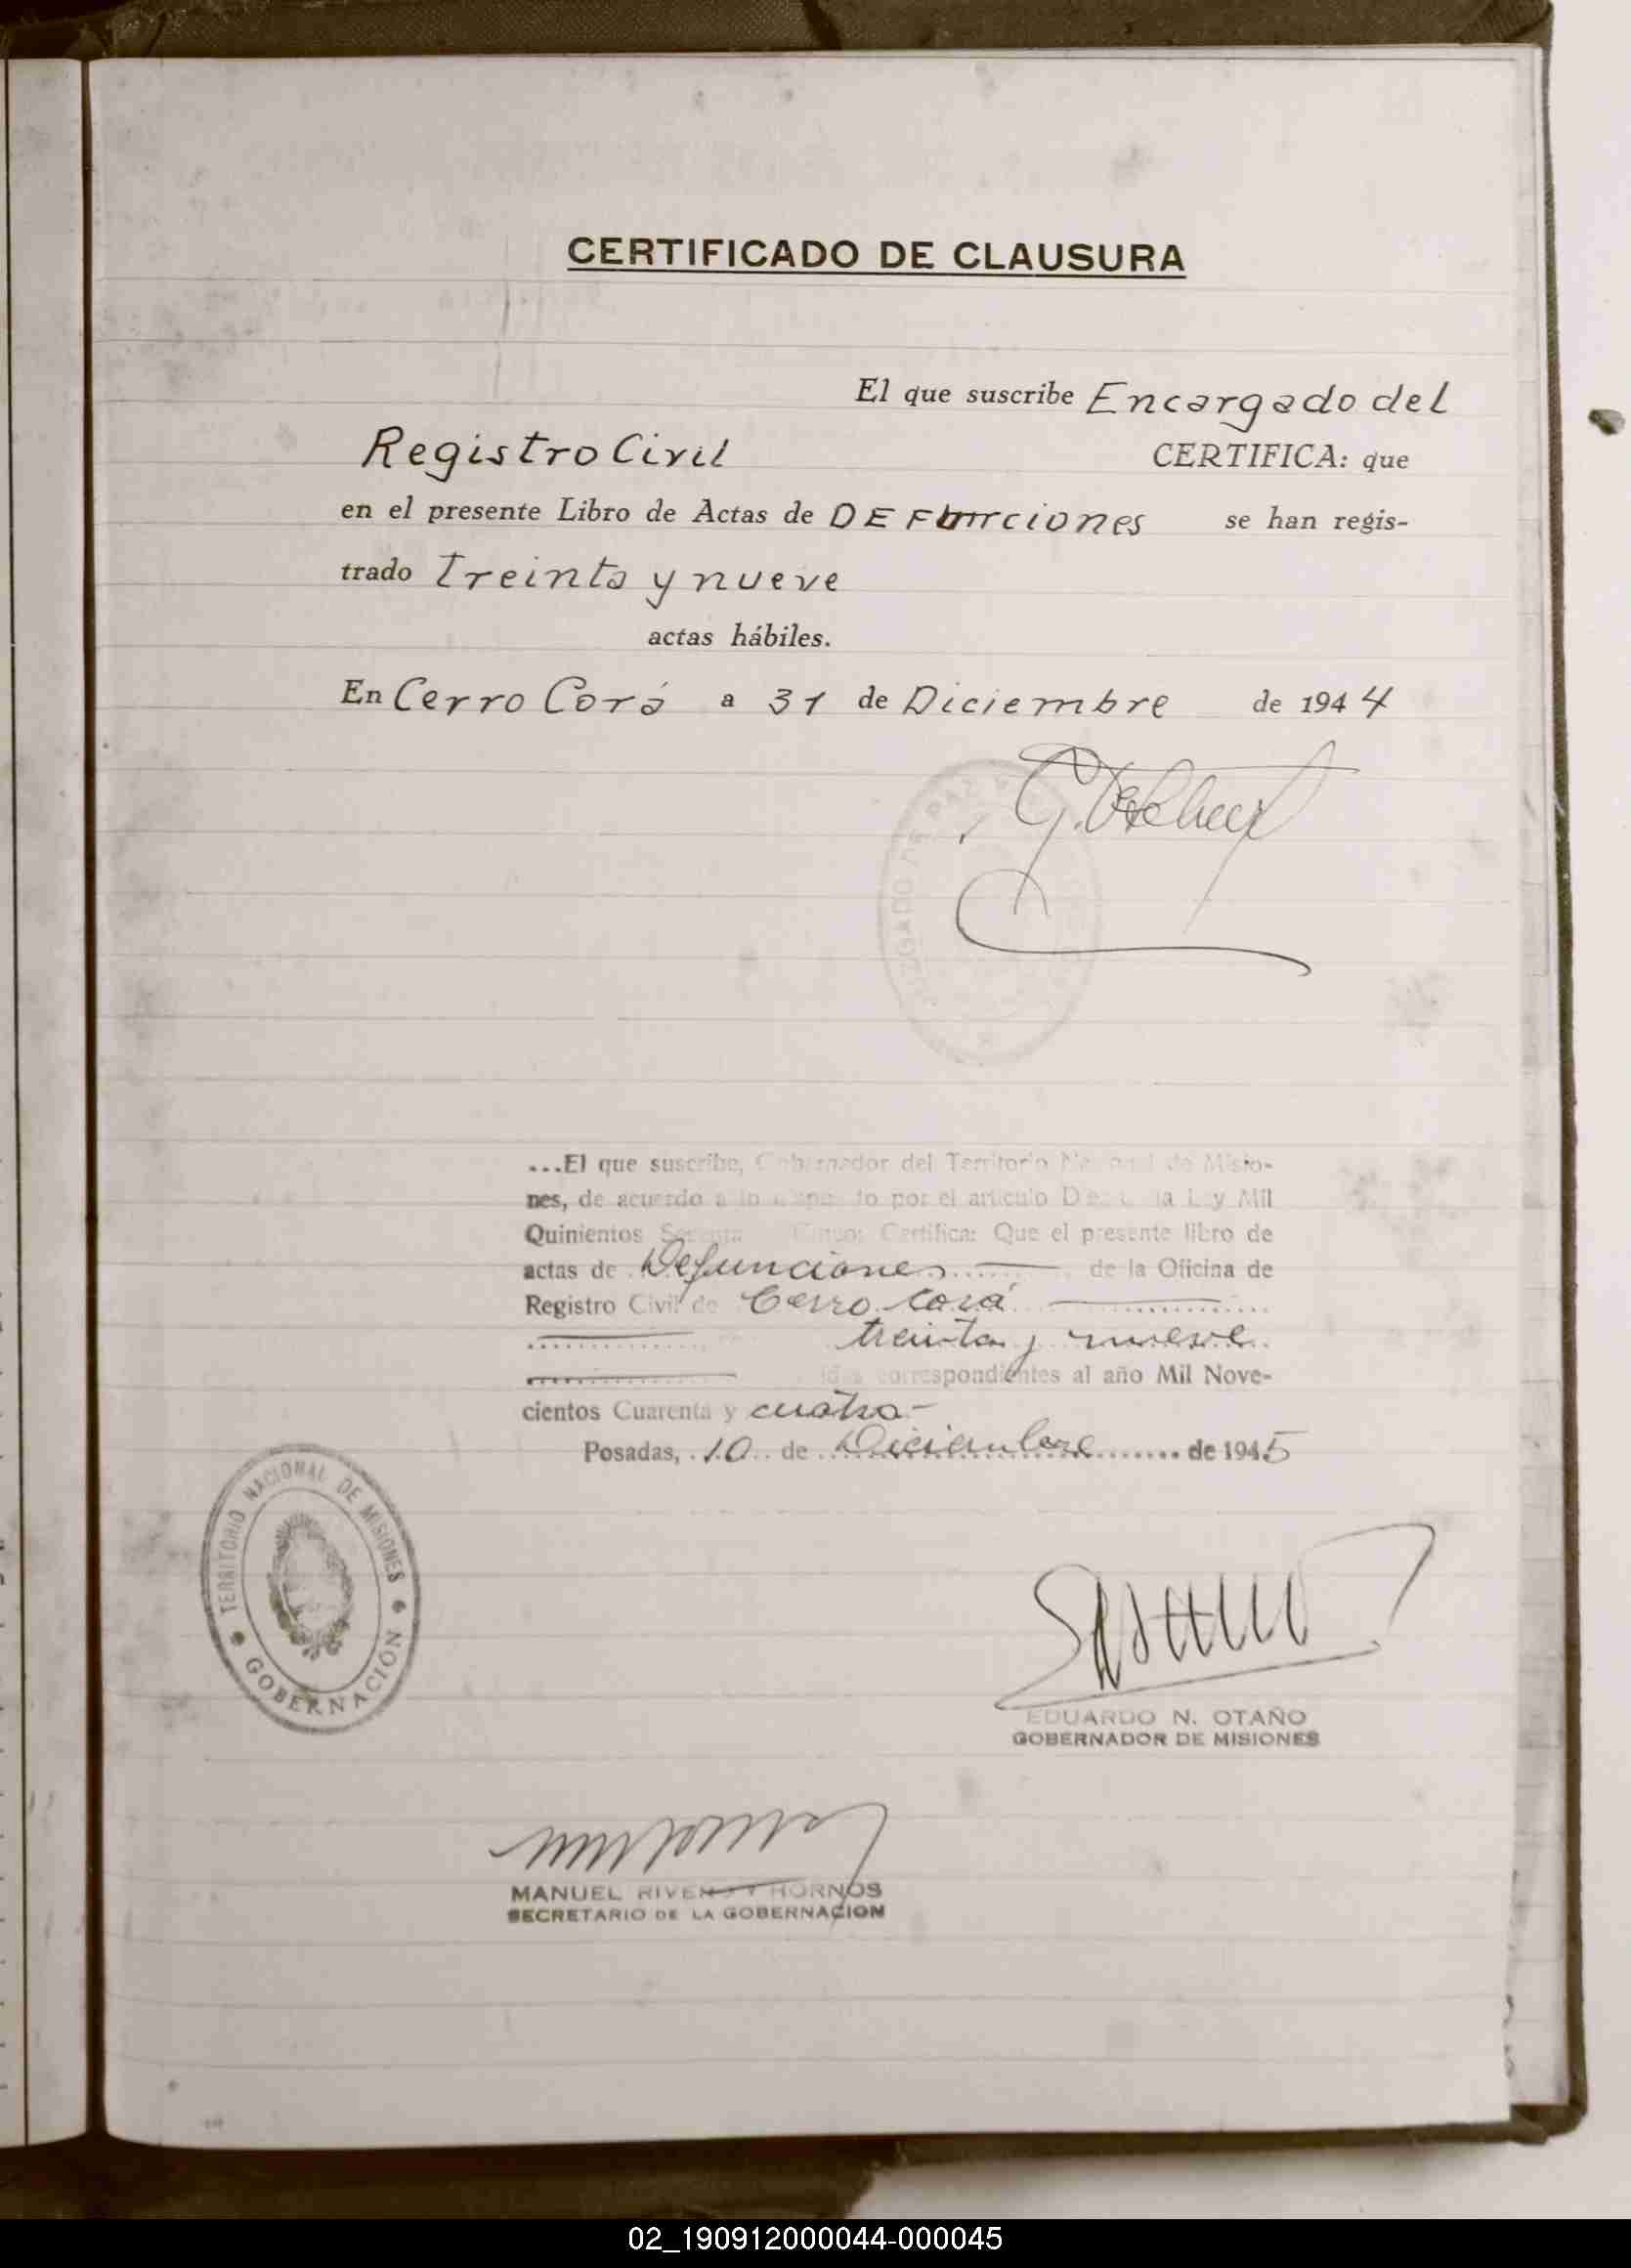 CERTIFICADO DE CLAUSURA
El que suscribe Encargado del
Registro Civil CERTIFICA: que
en el presente Libro de Actas de DEFunciones se han regis-
trado Treinta y nueve
actas hábiles.
En Cerro Corá a 31 de Diciembre de 1944
JUZGADO DE PAZ
...El que suscribe, Gobernador del Territorio Nacional de Misio-
nes, de acuerdo a lo por el artículo Ley Mil
Quinientos Certifica: Que el presente libro de
actas de Defunciones de la Oficina de
Registro Civil de Cerro Corá
treinta y nueve
correspondientes al año Mil Nove-
cientos Cuarenta y cuatro-
Posadas, 10 de Diciembre de 1945
TERRITORIO NACIONAL DE MISIONES
GOBERNACIÓN
EDUARDO N. OTAÑO
GOBERNADOR DE MISIONES
MANUEL HORNOS
SECRETARIO DE LA GOBERNACION
02_190912000044-000045